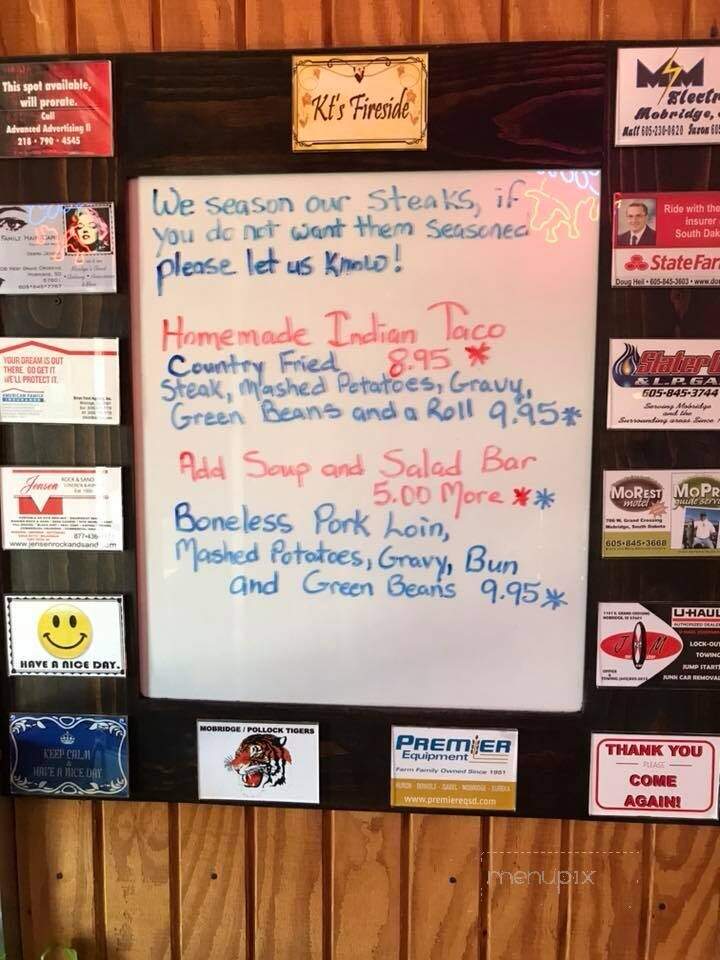 This spot available,
will prorate.
Call
Advanced Advertising II
218 • 790 • 4545
Kt's Fireside
M M
Electr
Mobridge,
Kall 605-230-0620
We season our Steaks, if
you do not want them Seasoned
please let us Know!
Homemade Indian Taco
8.95 *
Country Fried
Steak, Mashed Potatoes, Gravy,
Green Beans and a Roll 9.95*
Add Soup and Salad Bar
5.00 More **
Boneless Pork Loin,
Mashed Potatoes, Gravy, Bun
and Green Beans 9.95*
Ride with the
insurer
South Dak
StateFar
Doug Heil • 605-845-3603 • www.do
YOUR DREAM IS OUT
THERE. GO GET IT.
WE'LL PROTECT IT.
AMERICAN FAMILY
INSURANCE
Slater
& L.P. GA
605-845-3744
Serving Mobridge
and the
Surrounding areas Since
Jensen
ROCK & SAND
www.jensenrockandsand
MoRest
motel
MoPR
guide serv
706 W. Grand Crossing
Mobridge, South Dakota
605•845•3668
HAVE A NICE DAY.
U-HAUL
AUTHORIZED DEALER
J M
LOCK-OU
TOWING
JUMP START
JUNK CAR REMOVAL
KEEP CALM
&
HAVE A NICE DAY
MOBRIDGE / POLLOCK TIGERS
PREMIER
Equipment
Farm Family Owned Since 1951
www.premiereqsd.com
THANK YOU
PLEASE
COME
AGAIN!
menupix